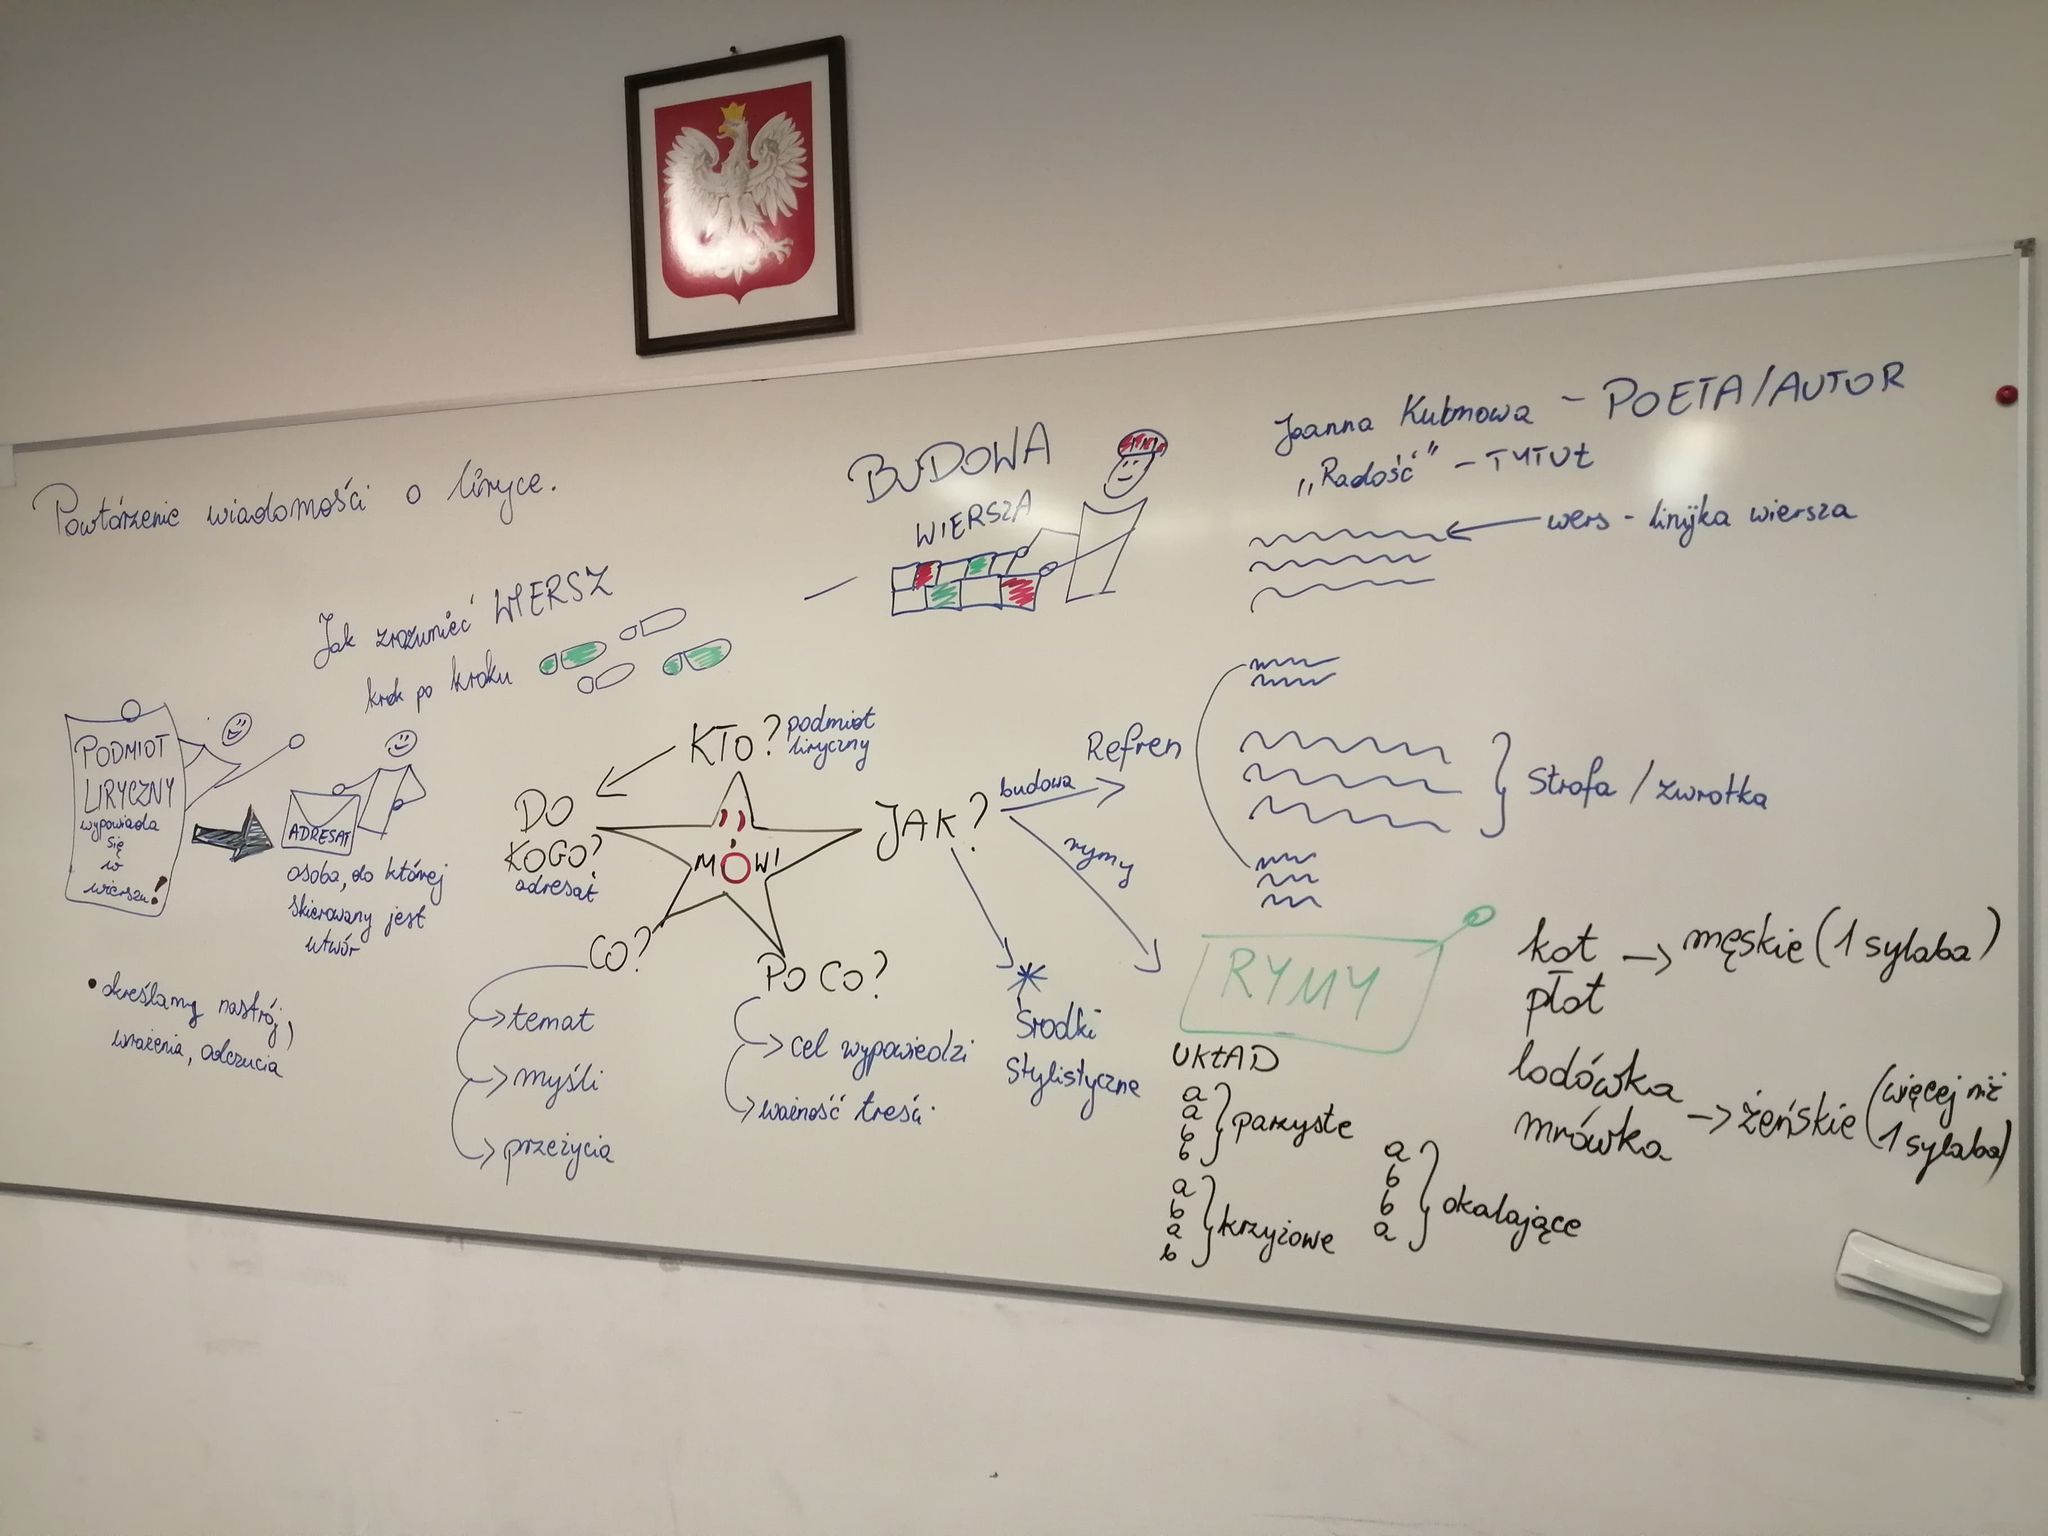 Powtórzenie wiadomości o liryce.
Jak zrozumieć WIERSZ
krok po kroku
PODMIOT
LIRYCZNY
wypowiada
się
w
wierszu!
ADRESAT
osoba, do której
skierowany jest
utwór
• określamy nastrój,
wrażenia, odczucia
KTO? podmiot
liryczny
DO
KOGO?
adresat
MÓWI
JAK?
CO?
temat
myśli
przeżycia
PO CO?
cel wypowiedzi
ważność treści.
budowa
rymy
Środki
stylistyczne
BUDOWA
WIERSZA
Joanna Kulmowa – POETA/AUTOR
„Radość” – TYTUŁ
wers - linijka wiersza
Refren
Strofa / zwrotka
RYMY
UKŁAD
a
a
b
b
parzyste
a
b
a
b
krzyżowe
a
b
b
a
okalające
kot
płot
męskie (1 sylaba)
lodówka
mrówka
żeńskie (więcej niż
1 sylaba)